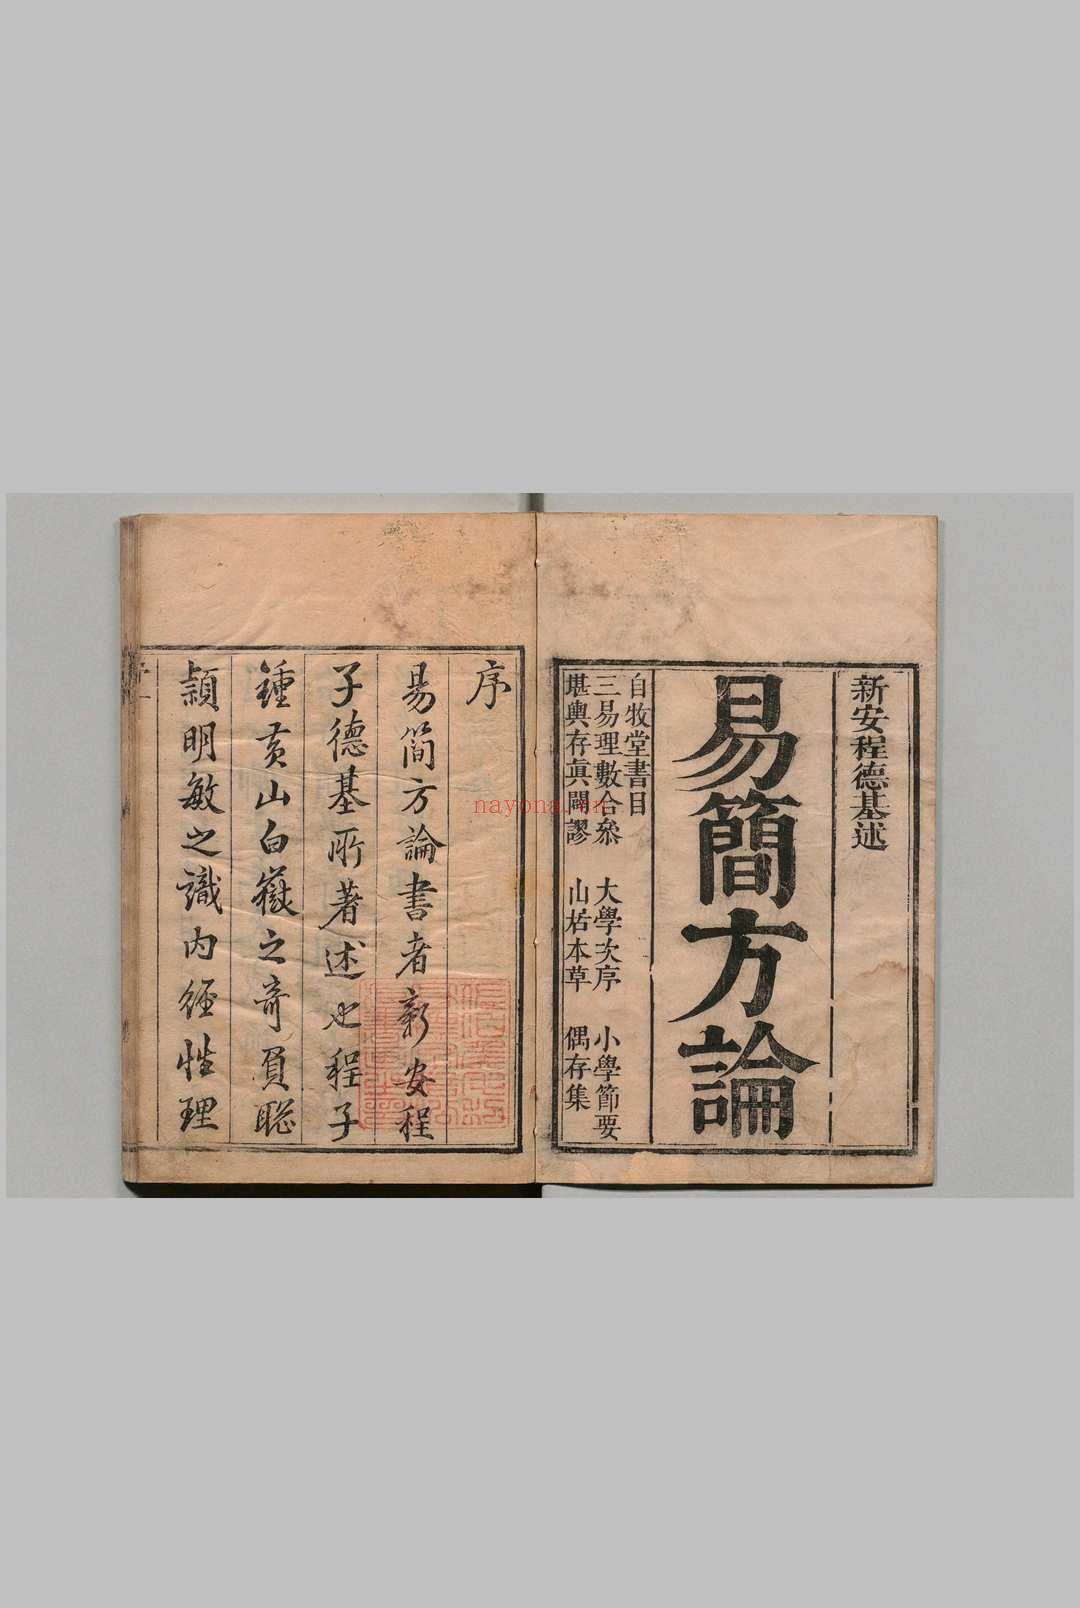 新安程德基述
易簡方論
自牧堂書目
三易理數合叅 大學次序 小學節要
堪輿存眞闢謬 山居本草 偶存集
序
易簡方論書者新安程
子德基所著述也程子
鍾黃山白嶽之奇負聰
頴明敏之識內徑性理
nayona.cn